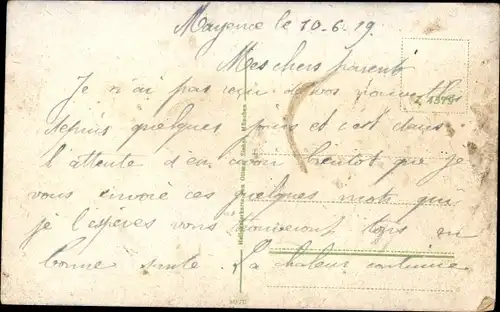 Mayence le 10-6-19
Mes chers parent
Je n'ai pas reçu de vos nouvelles
Z 1379
depuis quelques jours et c'est dans
l'attente d'en avoir bientot que je
vous envoie ces quelques mots qui
je l'espères vous trouveront tous en
bonne sante. La chaleur continue